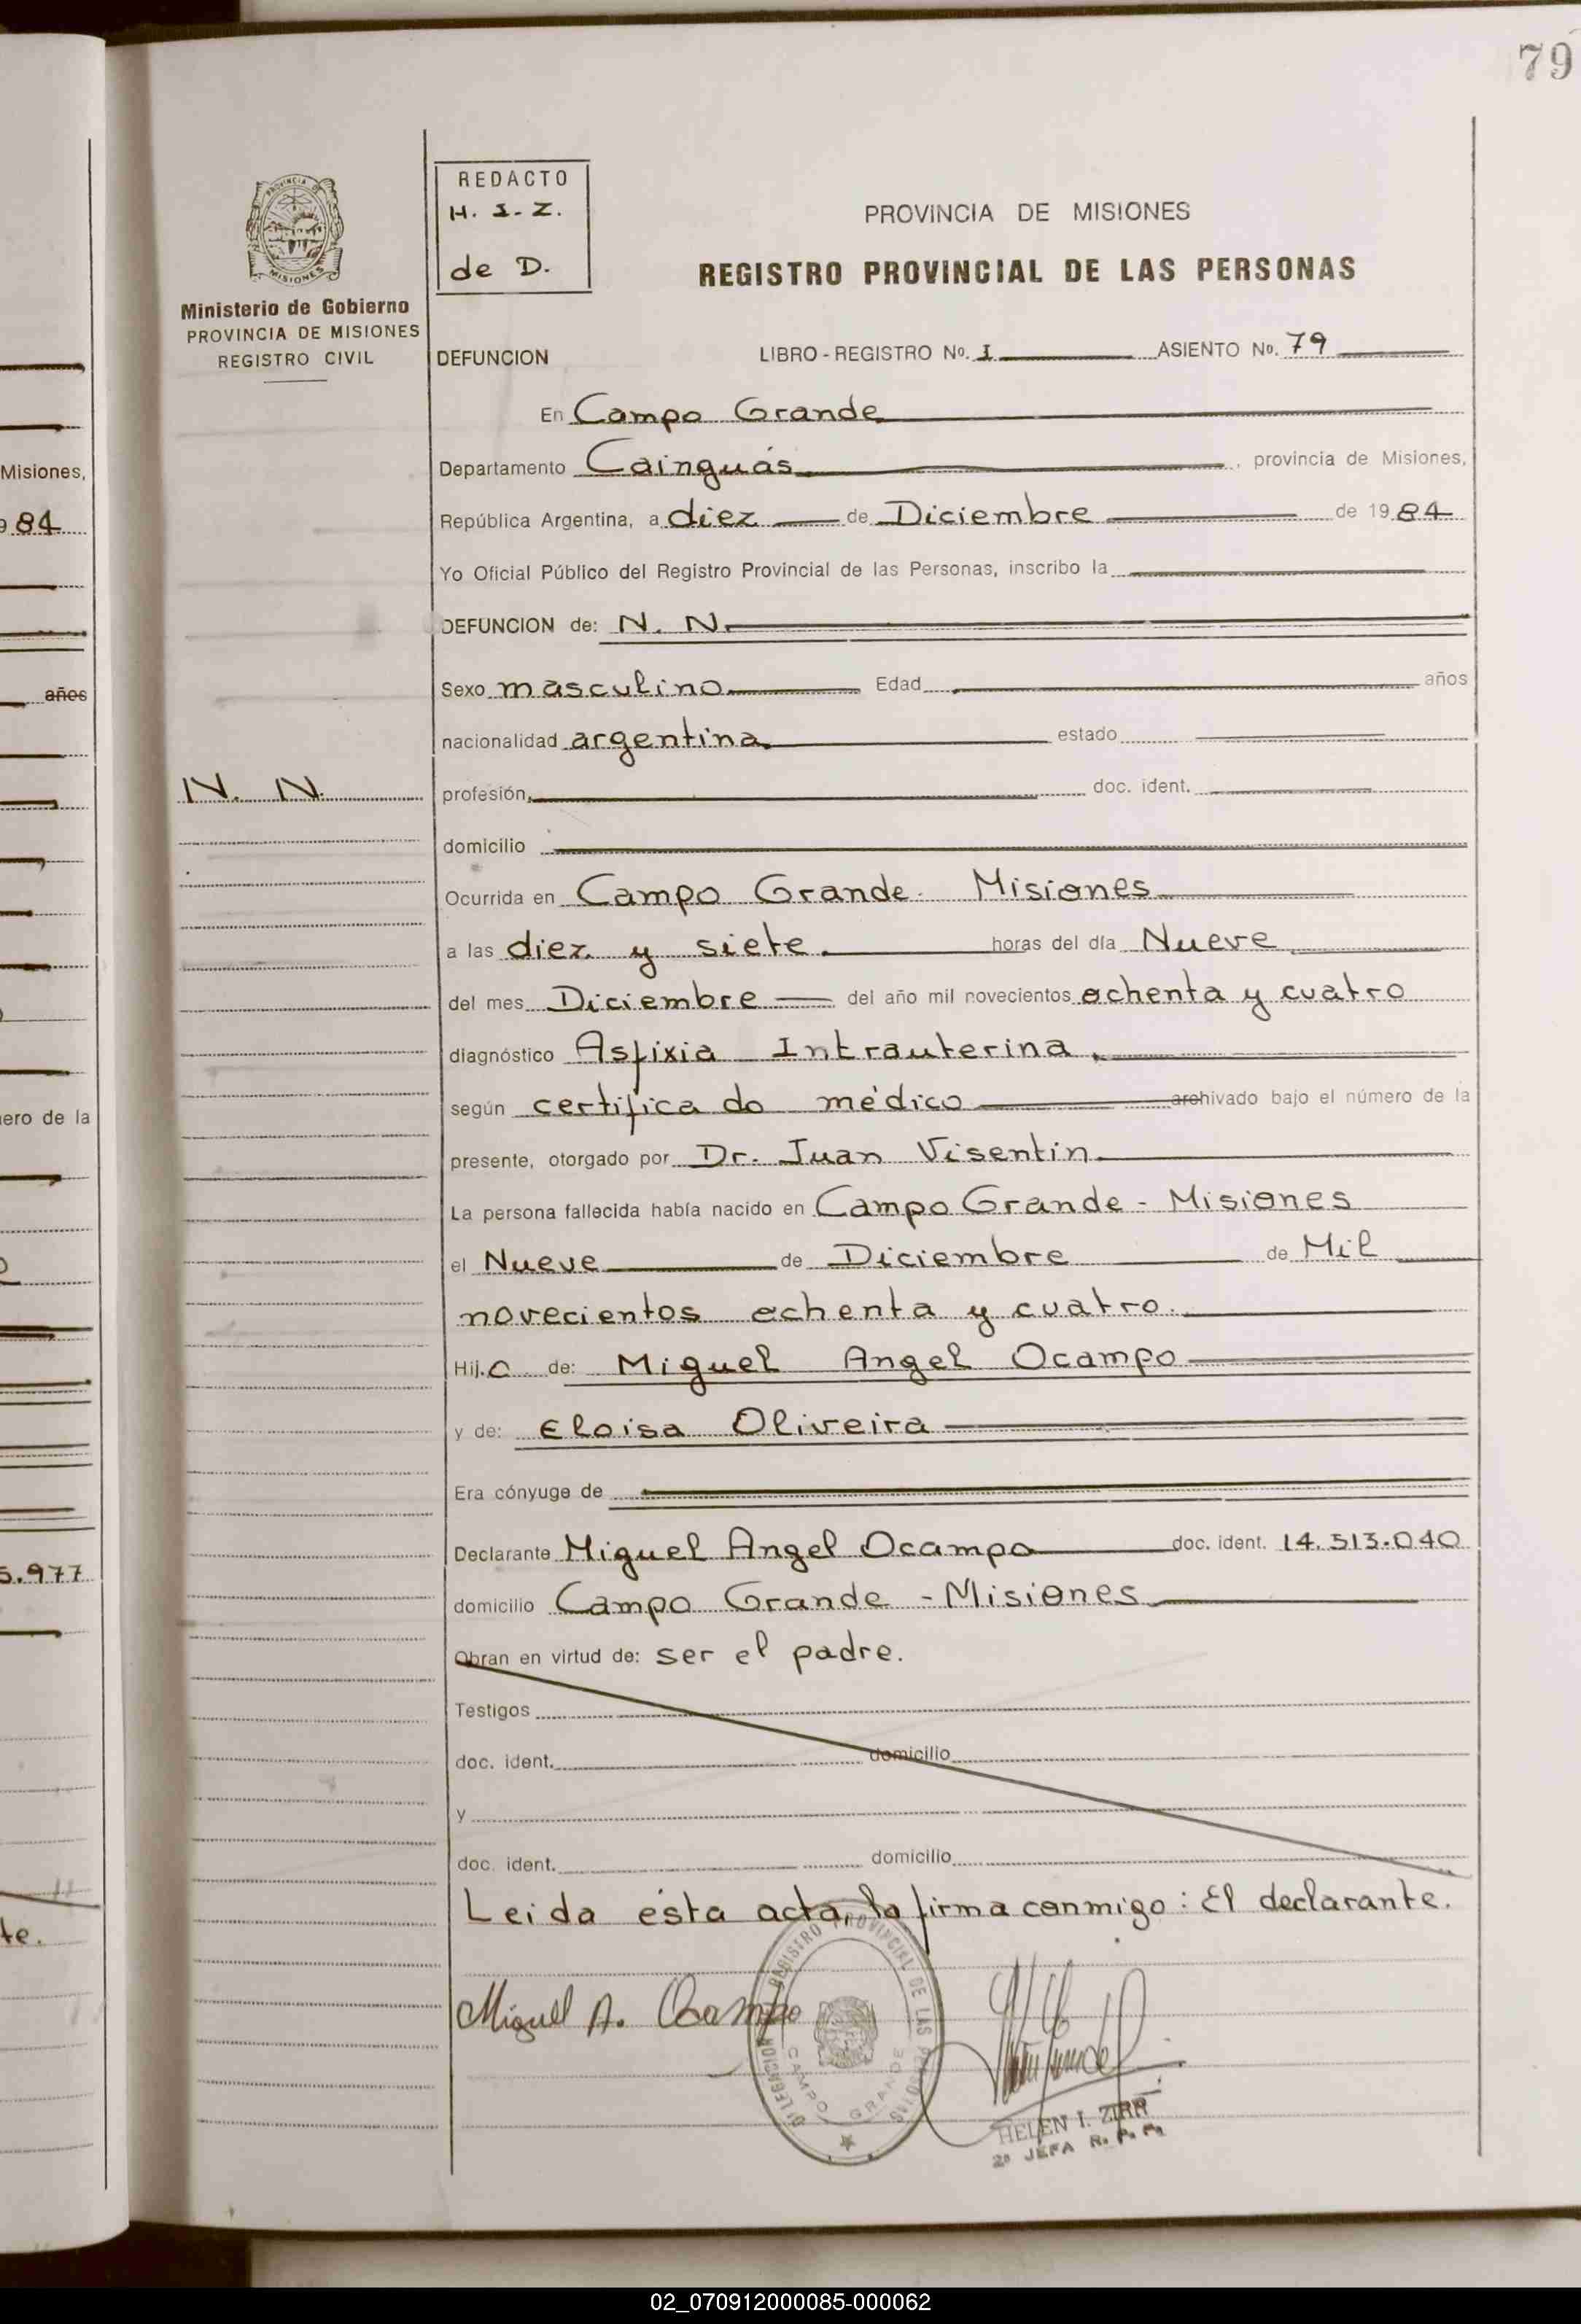 79
REDACTO
H. I. Z.
de D.
PROVINCIA DE MISIONES
REGISTRO PROVINCIAL DE LAS PERSONAS
PROVINCIA DE
MISIONES
Ministerio de Gobierno
PROVINCIA DE MISIONES
REGISTRO CIVIL
DEFUNCION LIBRO - REGISTRO No. I ASIENTO No. 79
En Campo Grande
Departamento Cainguás, provincia de Misiones,
República Argentina, a diez de Diciembre de 1984
Yo Oficial Público del Registro Provincial de las Personas, inscribo la
DEFUNCION de: N. N.
Sexo masculino Edad años
nacionalidad argentina. estado
N. N.
profesión, doc. ident.
domicilio
Ocurrida en Campo Grande. Misiones
a las diez y siete. horas del día Nueve
del mes Diciembre del año mil novecientos ochenta y cuatro
diagnóstico Asfixia Intrauterina.
según certificado médico archivado bajo el número de la
presente, otorgado por Dr. Juan Visentin.
La persona fallecida había nacido en Campo Grande - Misiones
el Nueve de Diciembre de Mil
novecientos ochenta y cuatro.
Hij.o de: Miguel Angel Ocampo
y de: Eloisa Oliveira
Era cónyuge de
Declarante Miguel Angel Ocampo doc. ident. 14.513.040
domicilio Campo Grande - Misiones
Obran en virtud de: ser el padre.
Testigos
doc. ident. domicilio
y
doc. ident. domicilio
Leida ésta acta, la firma conmigo: El declarante.
Miguel A. Ocampo
DELEGACION REGISTRO PROVINCIAL DE LAS PERSONAS
CAMPO GRANDE
HELEN I. ZIRR
2a JEFA R. P. P.
Misiones,
984
años
ero de la
5.977
te.
02_070912000085-000062